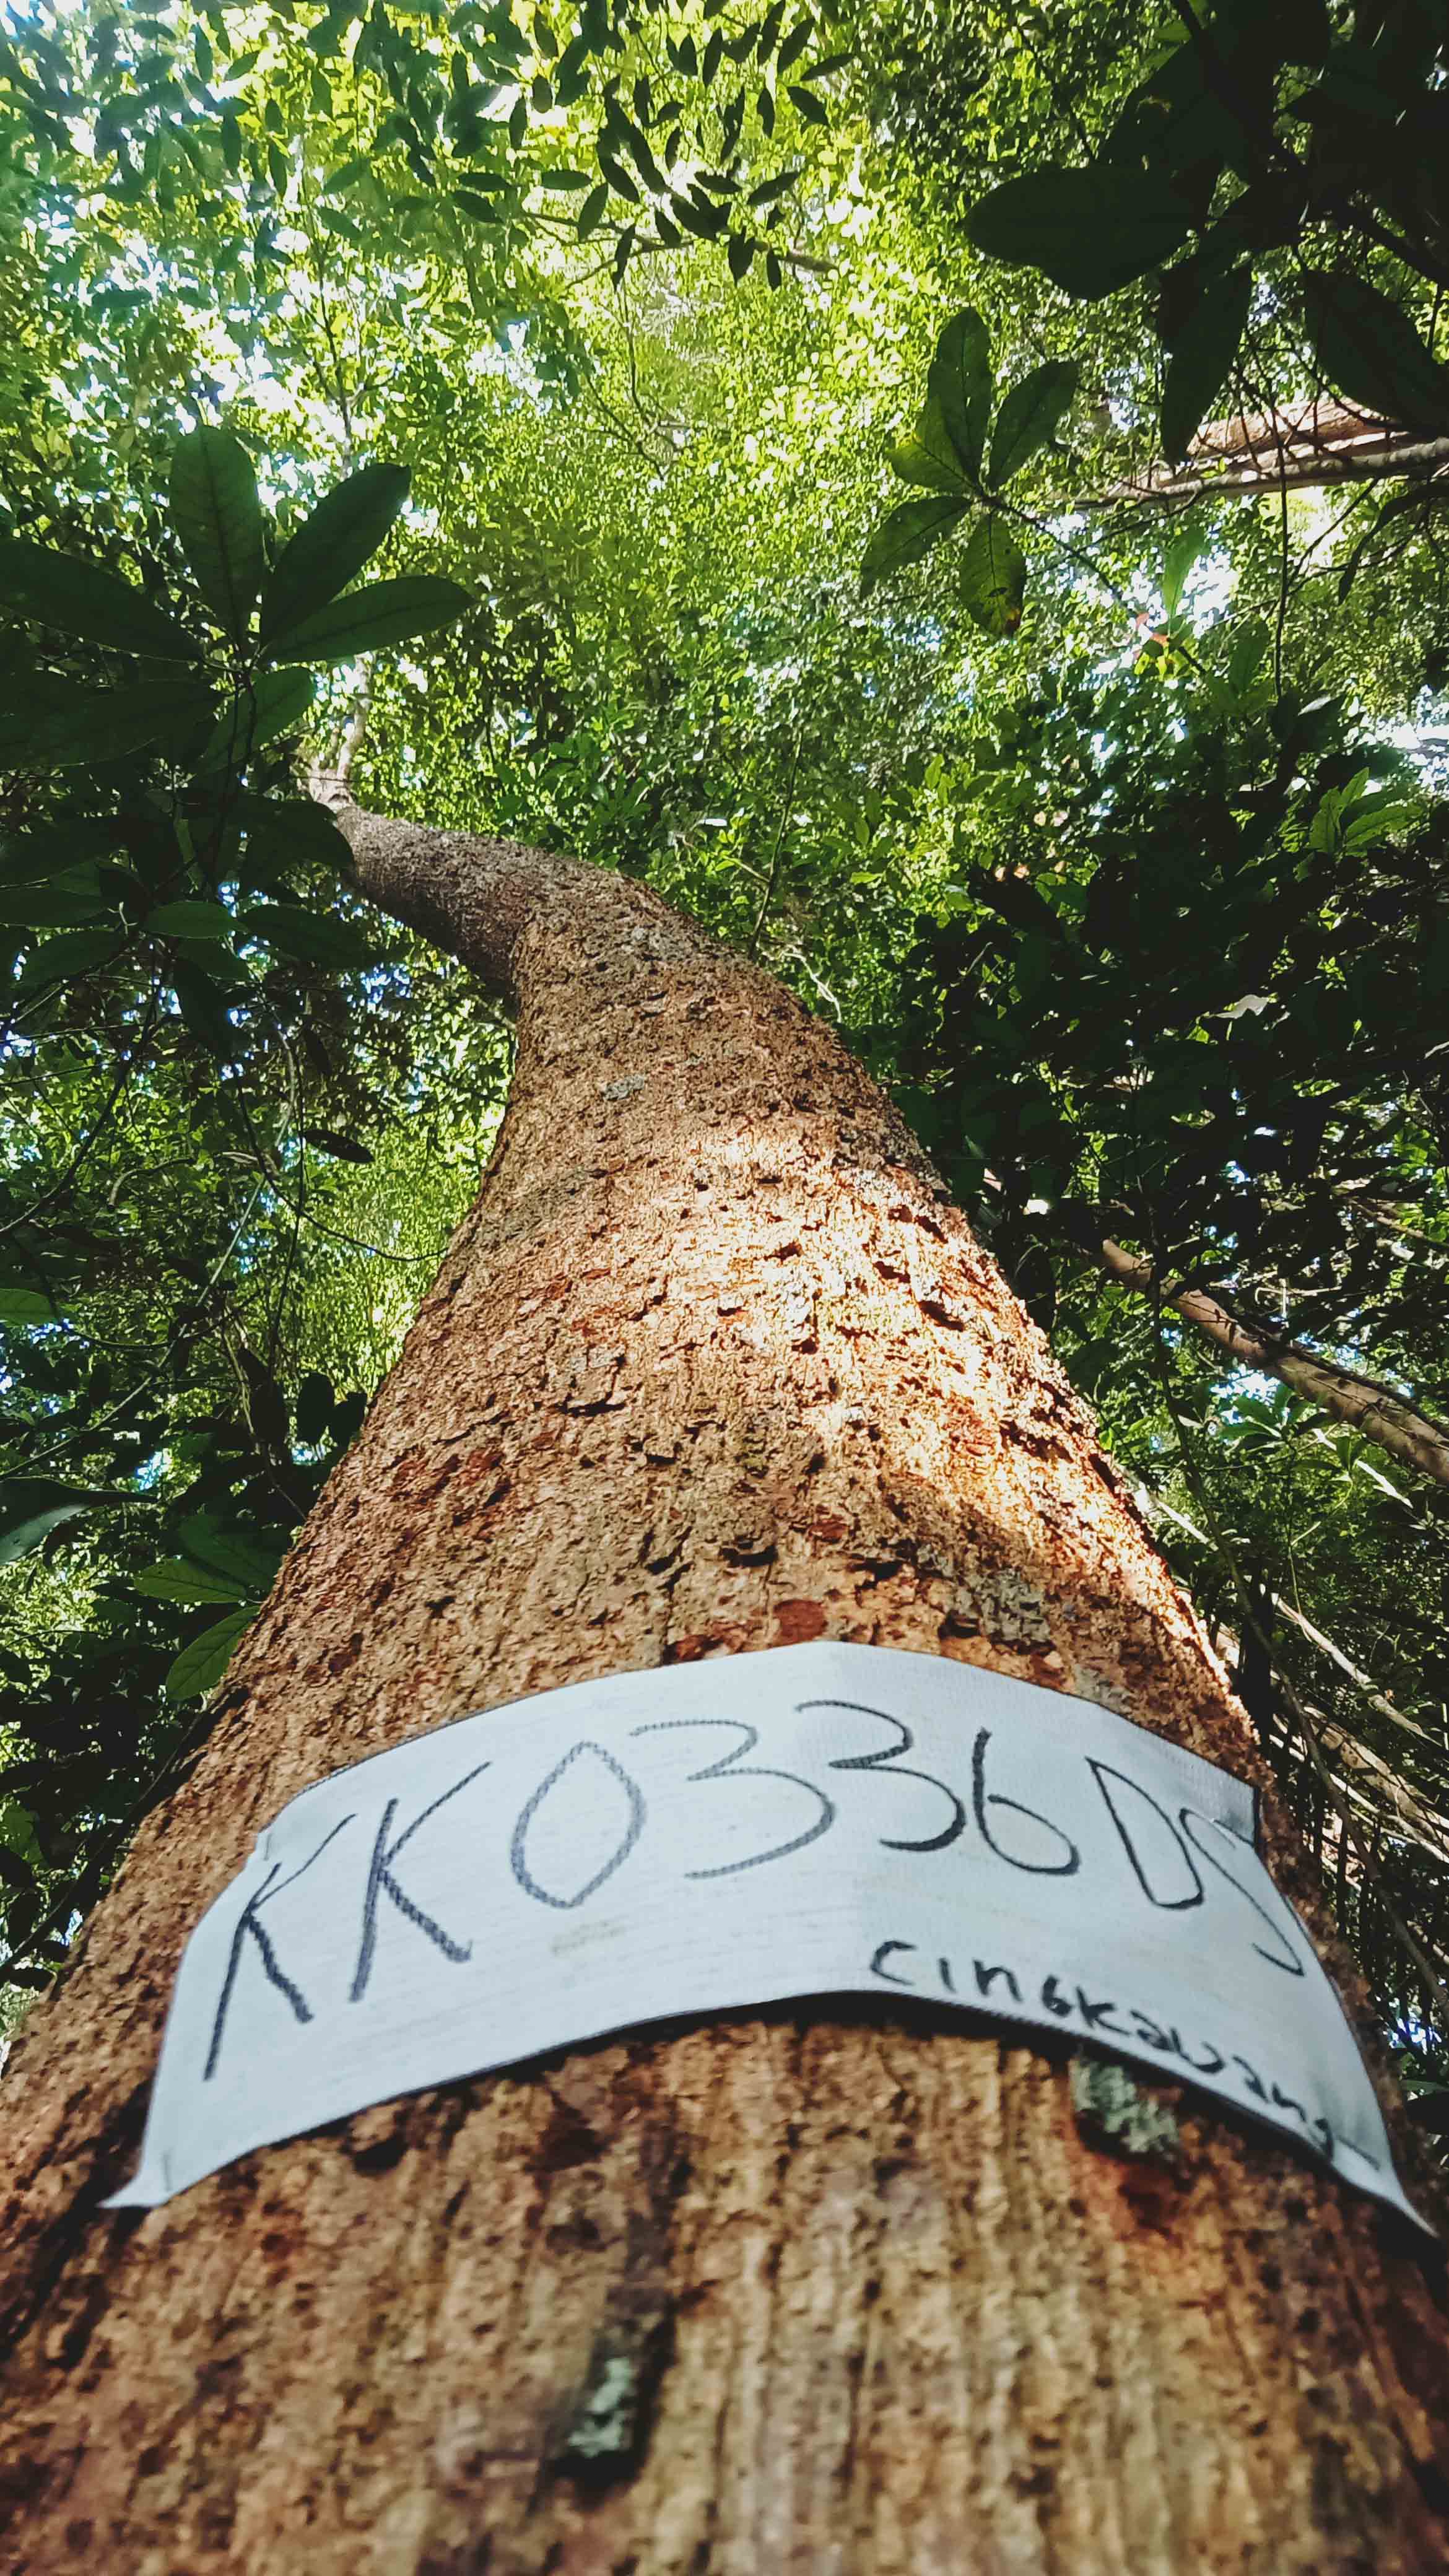 KK0336DS
Cingkawang